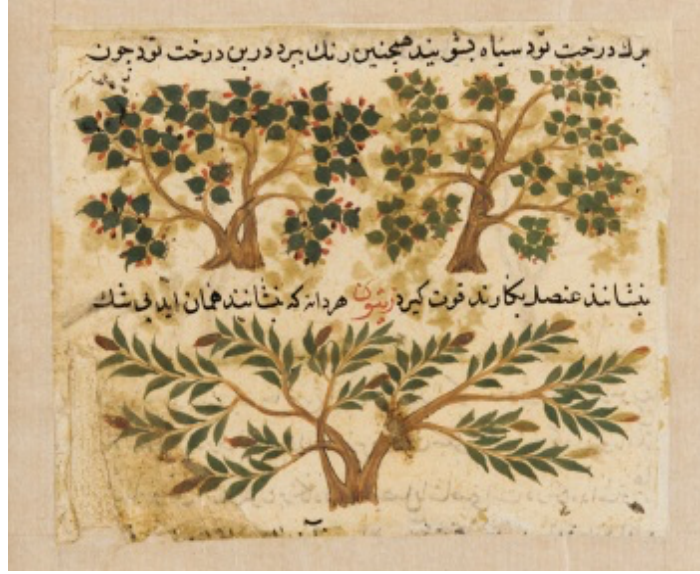 برك درخت تود سياه بشويند همچنين رنك ببرد در بن درخت تود چون
بنشانند عنصل بكارند قوت كيرد زيتون هر دانه كه بنشانند همان ايد بى شك